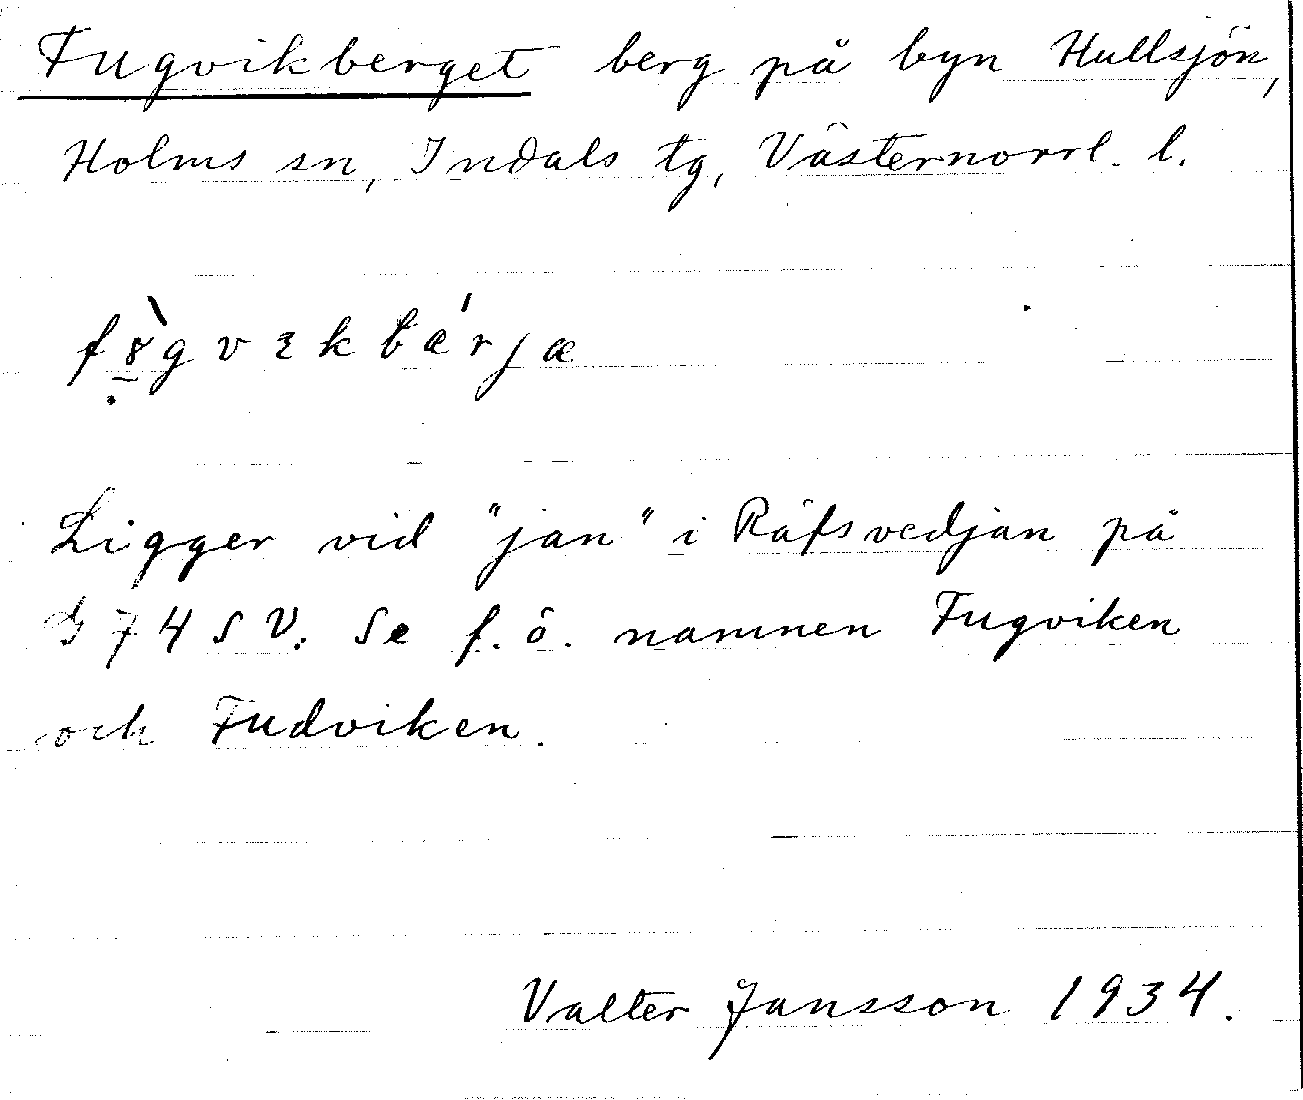 Fugvikberget berg på byn Hullsjön,
Holms sn, Indals tg, Västernorrl. l.
Ligger vid "jan" i Räfsvedjan på
G 74 SV. Se f. ö. namnen Fugviken
och Fudviken.
Valter Jansson 1934.